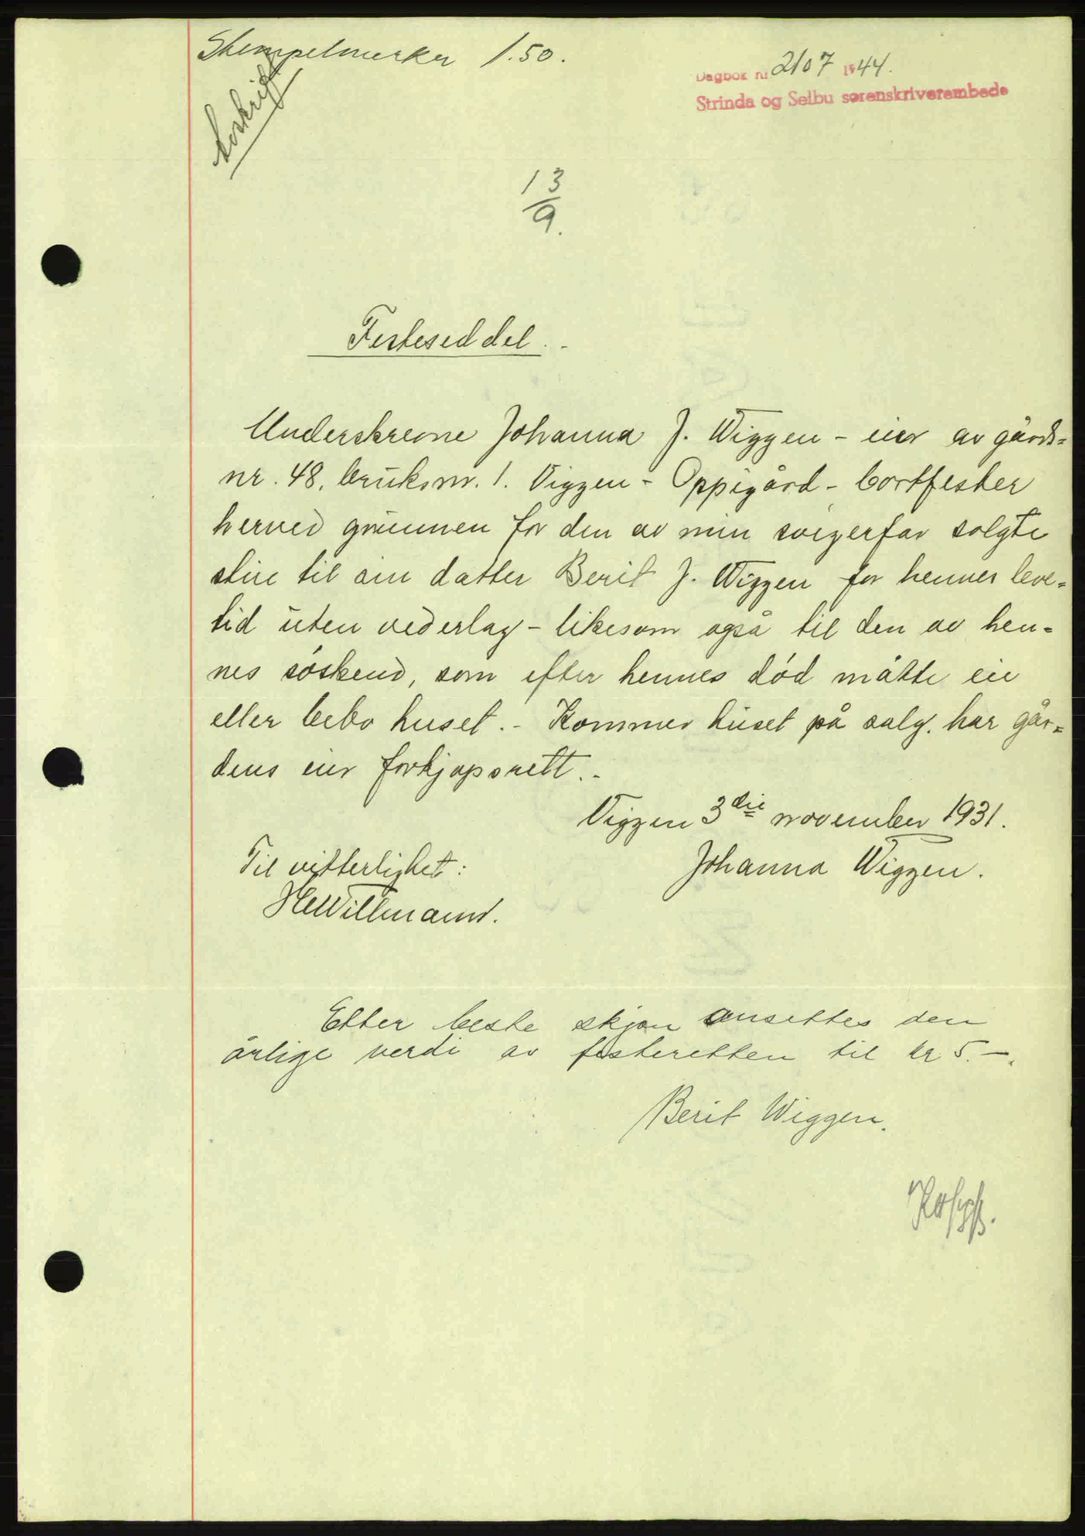 Stempelmerker 1.50.
Avskrift
Dagbok nr 2107 1944.
Strinda og Selbu sorenskriverembede
13
9.
Festeseddel.-
Underskrevne Johanna J. Wiggen - eier av gårds=
nr. 48, bruksnr. 1. Viggen - Oppigård - bortfester
herved grunnen for den av min svigerfar solgte
stue til sin datter Berit J. Wiggen for hennes leve=
tid uten vederlag - likesom også til den av hen=
nes søskend, som efter hennes død måtte eie
eller bebo huset.- Kommer huset på salg, har går=
dens eier forkjøpsrett.-
Viggen 3die november 1931.
Johanna Wiggen.
Til vitterlighet:
Etter beste skjøn ansettes den
årlige verdi av festeretten til kr 5.-.
Berit Wiggen.